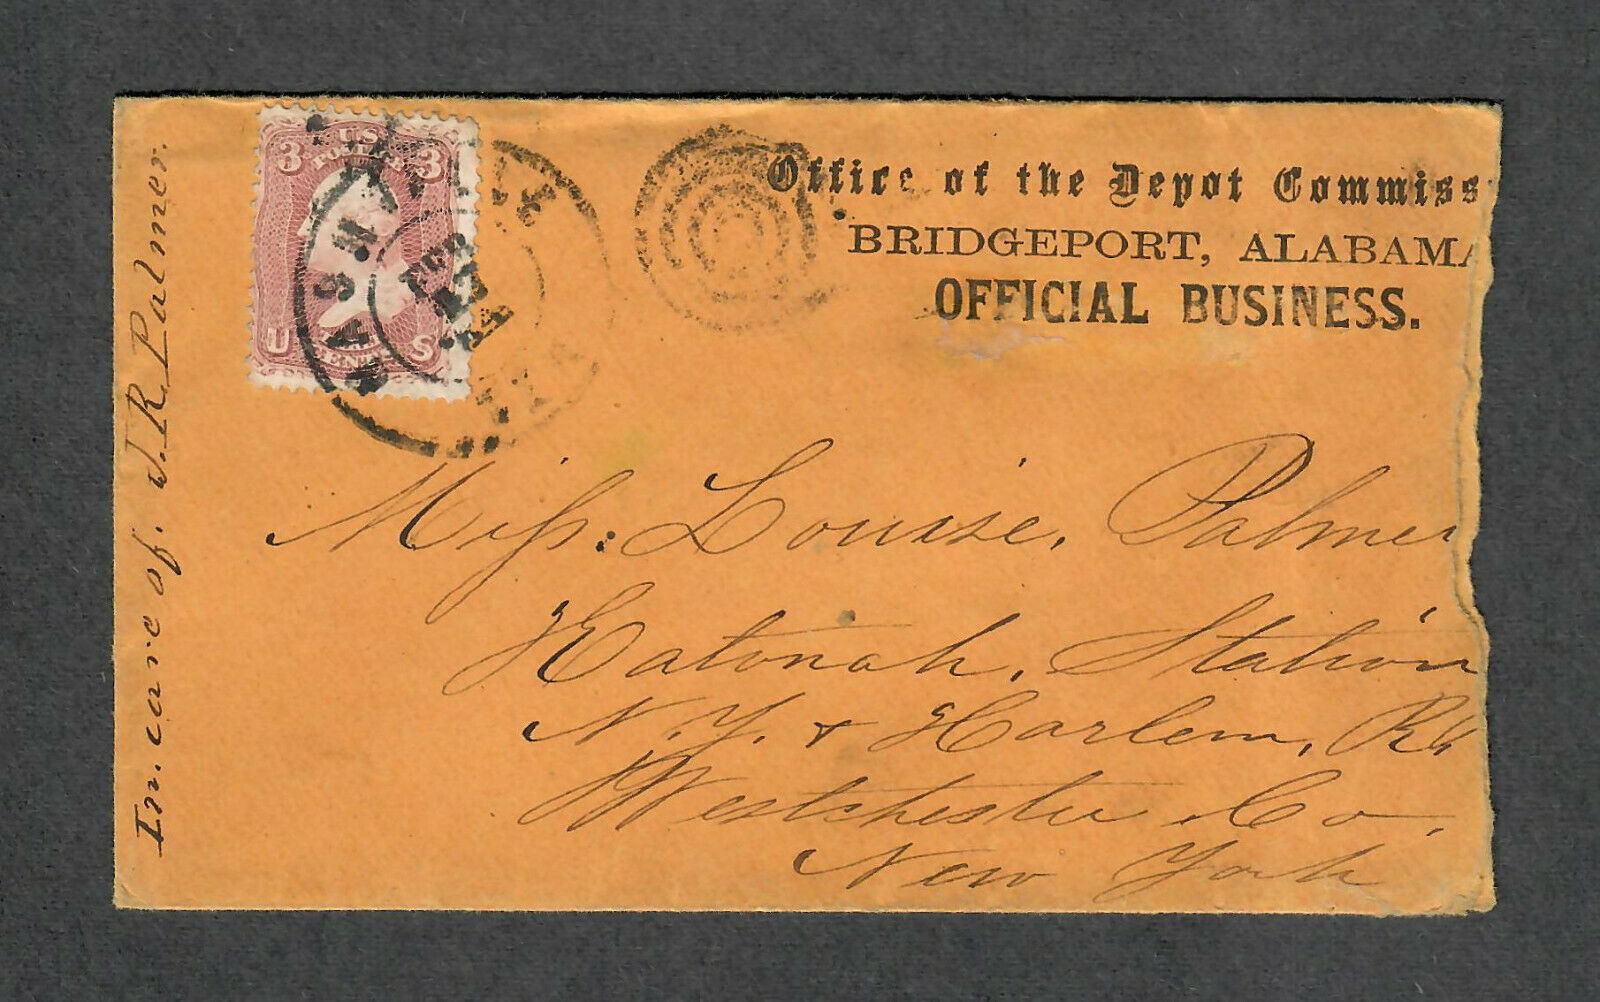 3 3
U.S.
POSTAGE
U S
CENTS
NASHV
FEB
17
Office of the Depot Commiss
BRIDGEPORT, ALABAMA
OFFICIAL BUSINESS.
In. care of. J. R. Palmer.
Miss: Louise. Palmer
Katonah. Station
N.Y. + Harlem, Rd
Westchester Co.
New York